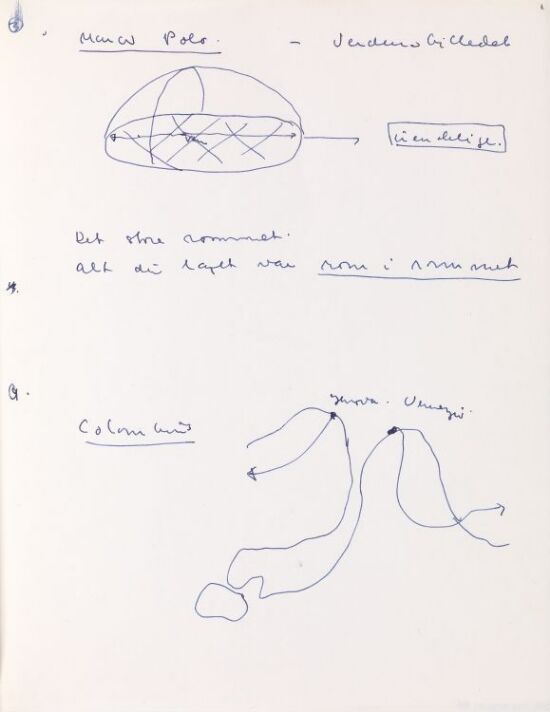 Marco Polo. - Verdensbilledet
uendelige.
Det store rommet.
alt du laget var rom i rommet
4.
Columbus
Genova. Venezia.